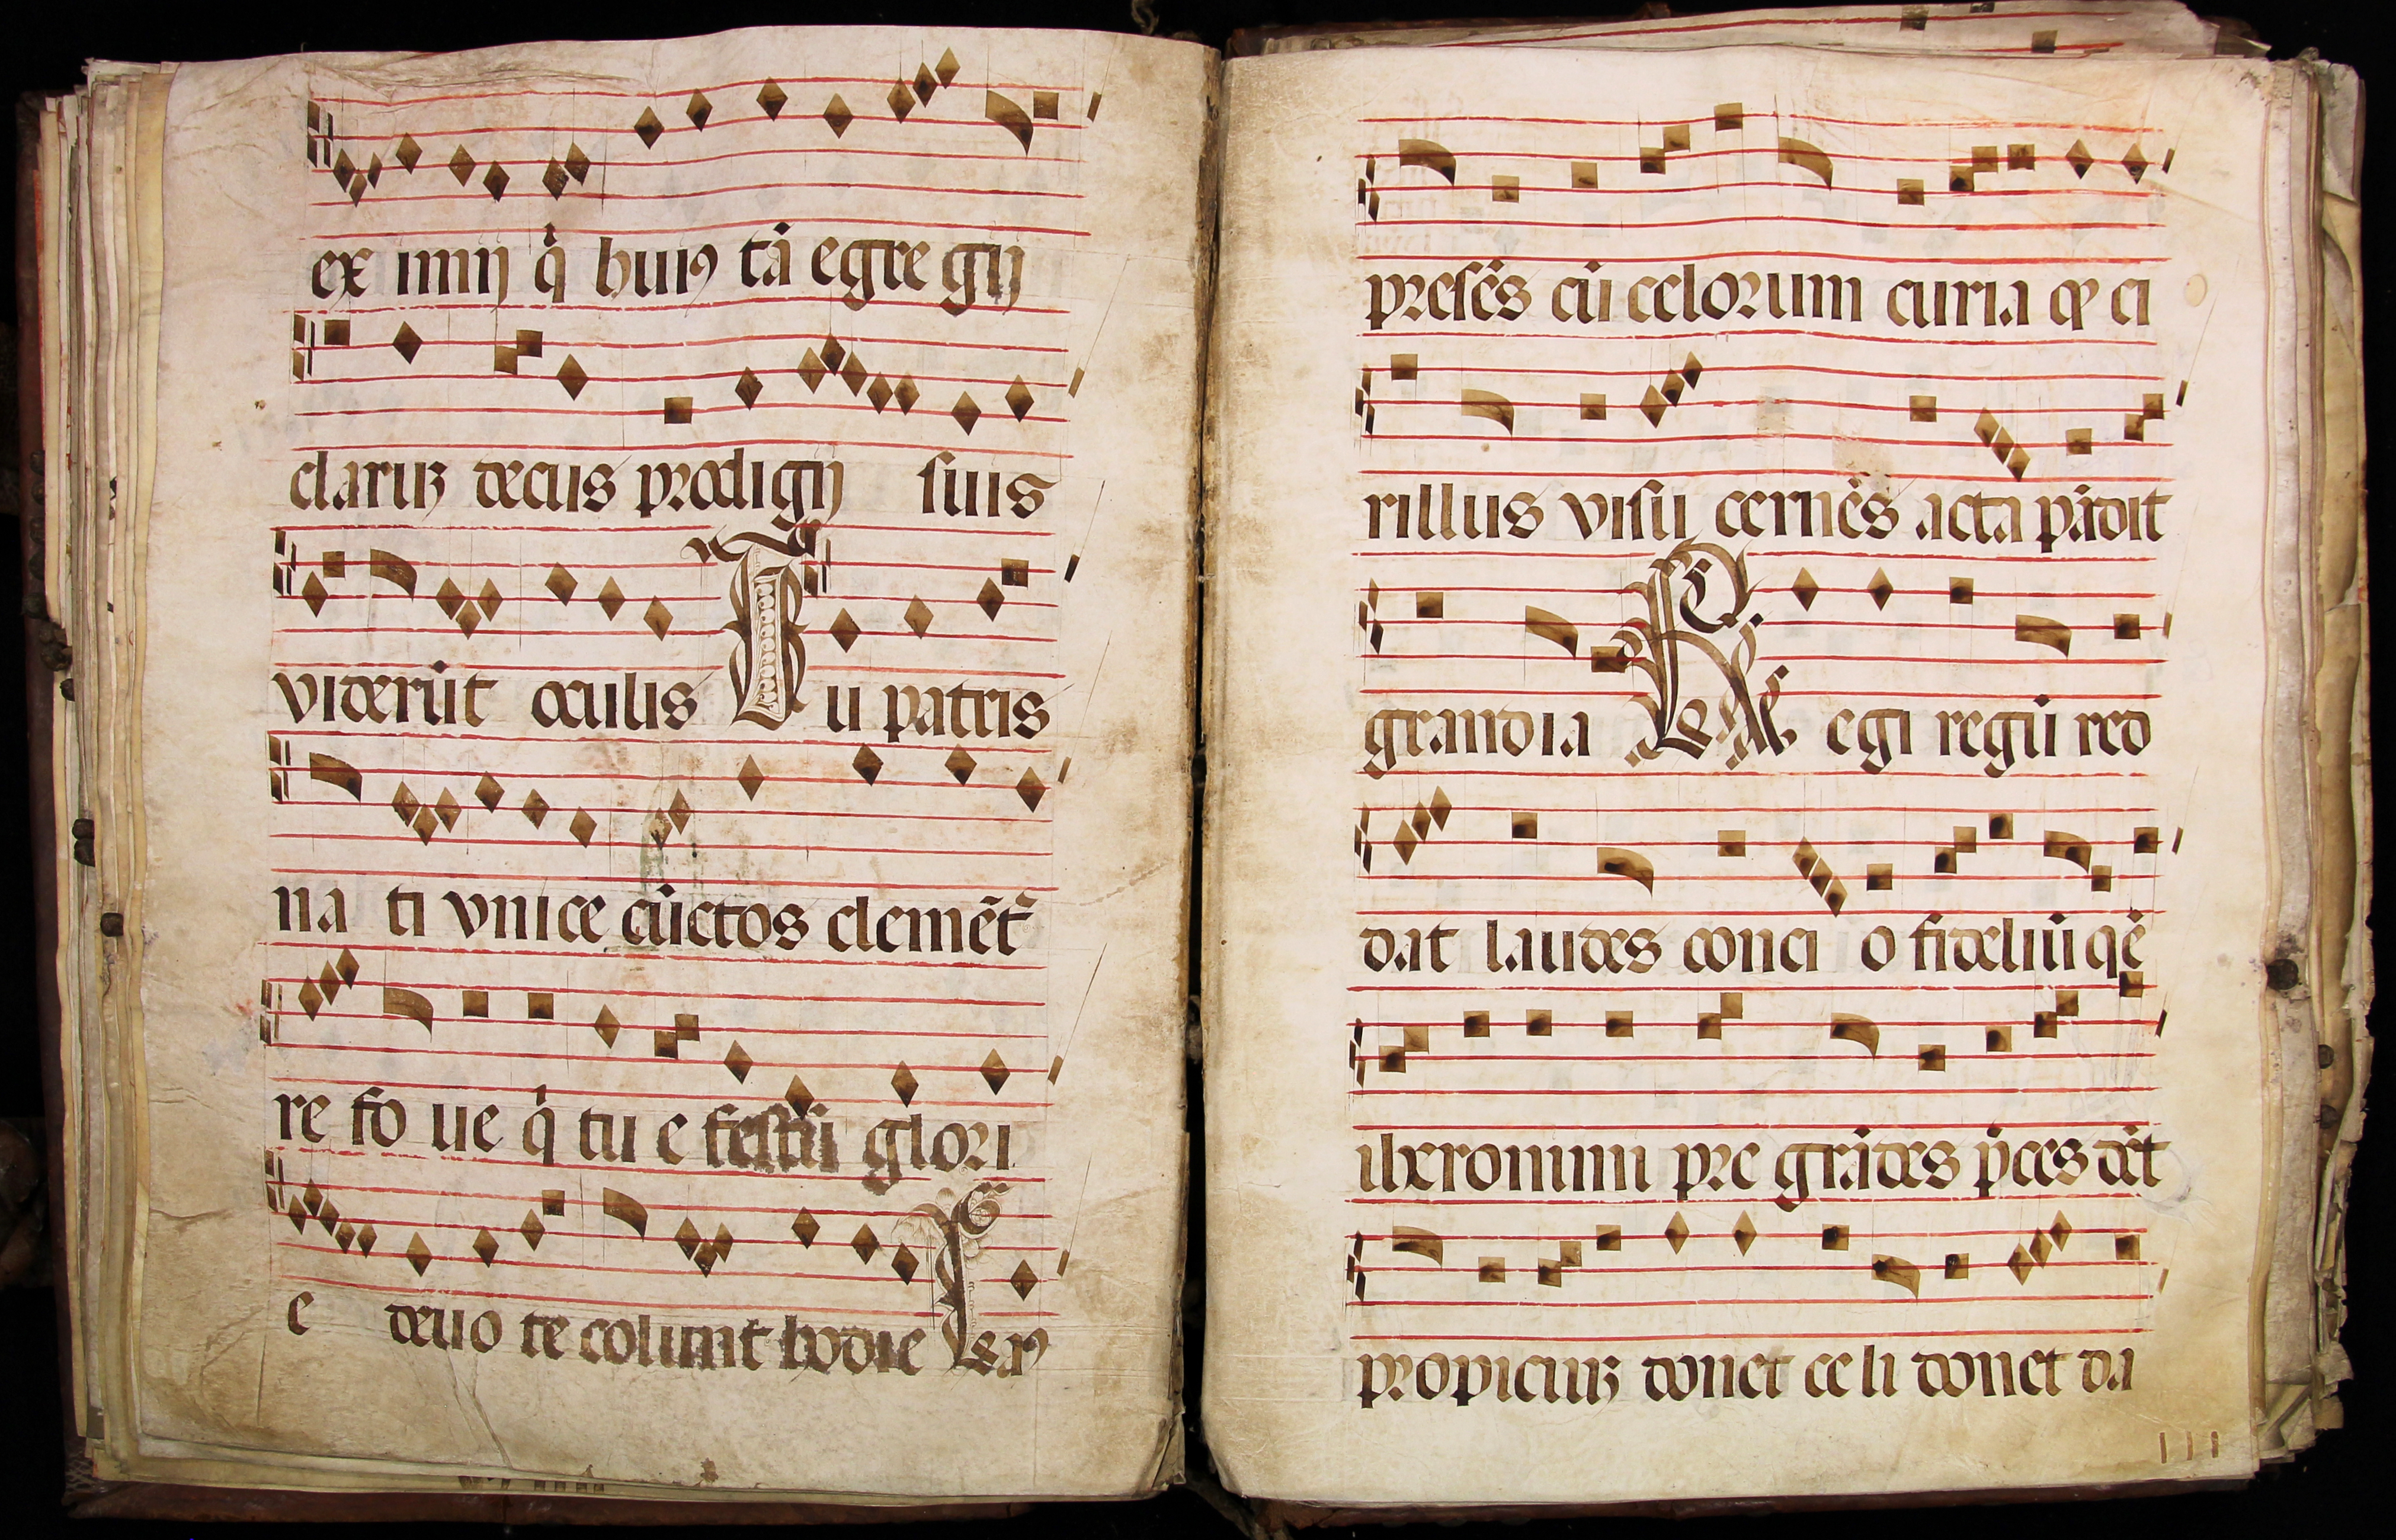 ex imij q̃ huiꝰ tã egre gij
clariꝫ decus prodigij suis
viderũt oculis Tu patris
na ti vnice cũctos clemẽt᷑
re fo ue q̃ tu e festũ glori
e deuo te colunt hodie
presẽs cũ celorum curia ci
rillus visu cernẽs acta pãdit
grandia R egi regũ red
dat laudes conci o fideliũ qẽ
iheronimi pre grãdes p̃ces dẽt
propiciuꝫ donet celi donet da
III